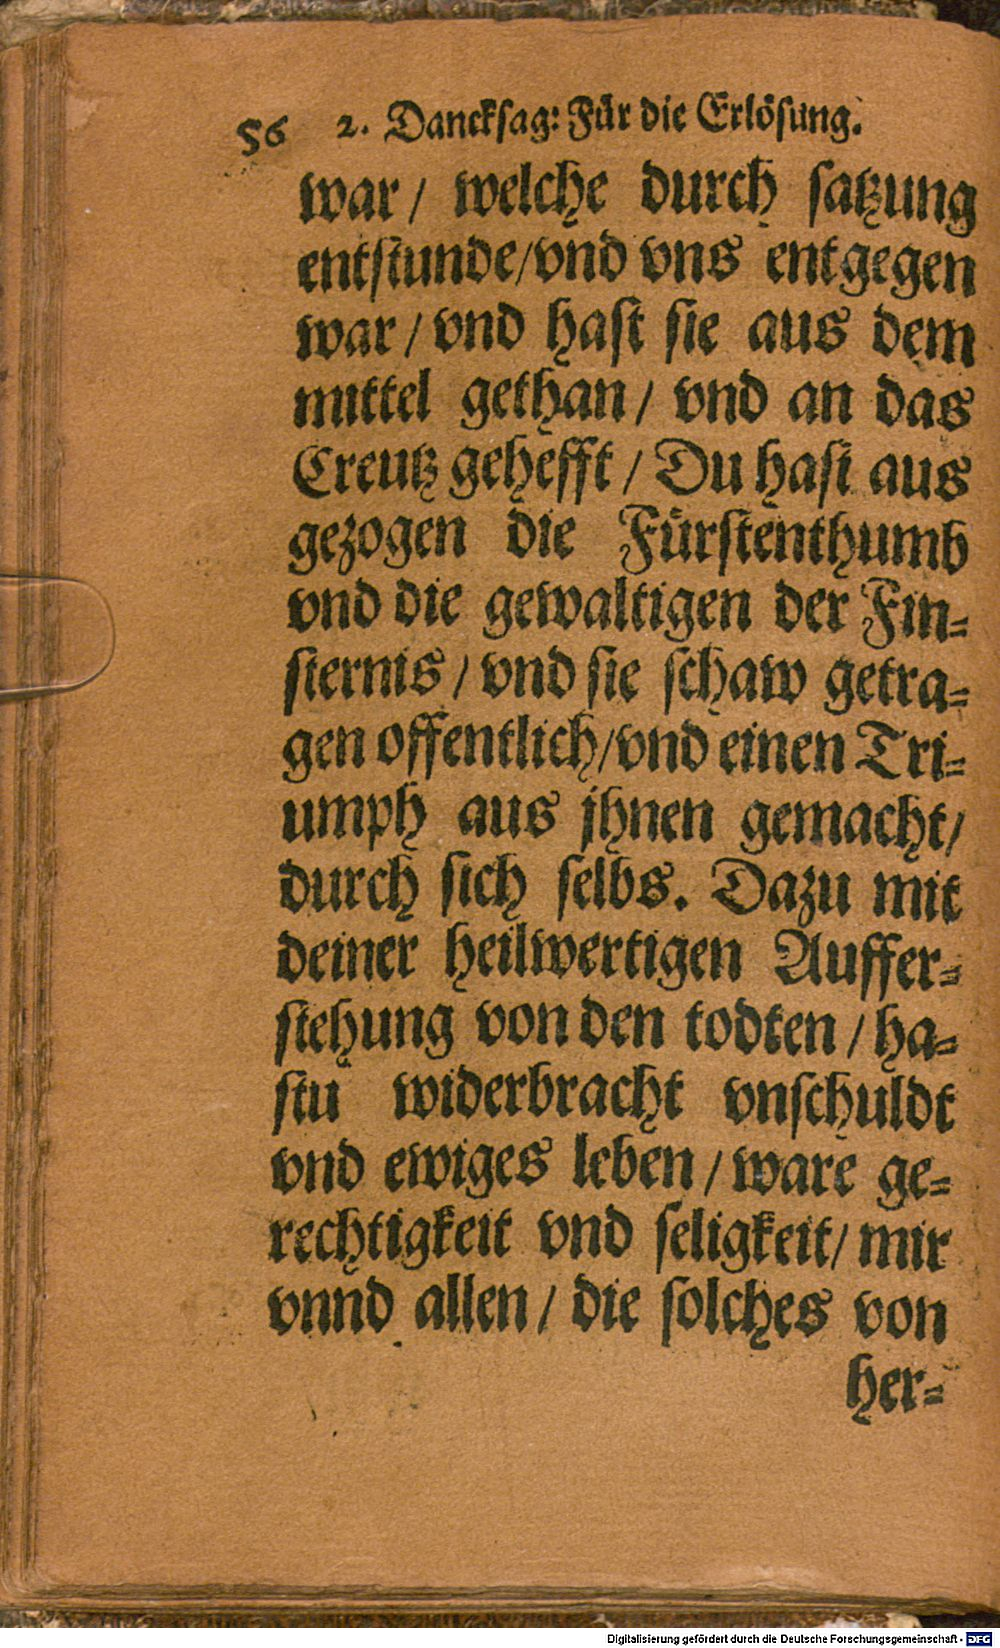 56 2. Dancksag: Für die Erlösung.
war / welche durch satzung
entstunde/vnd vns entgegen
war / vnd hast sie aus dem
mittel gethan / vnd an das
Creutz gehefft / Du hast aus
gezogen die Fürstenthumb
vnd die gewaltigen der Fin-
sternis / vnd sie schaw getra-
gen offentlich/vnd einen Tri-
umph aus jhnen gemacht/
durch sich selbs. Dazu mit
deiner heilwertigen Auffer-
stehung von den todten / ha-
stu widerbracht vnschuldt
vnd ewiges leben / ware ge-
rechtigkeit vnd seligkeit/ mir
vnnd allen / die solches von
her-
Digitalisierung gefördert durch die Deutsche Forschungsgemeinschaft - DFG